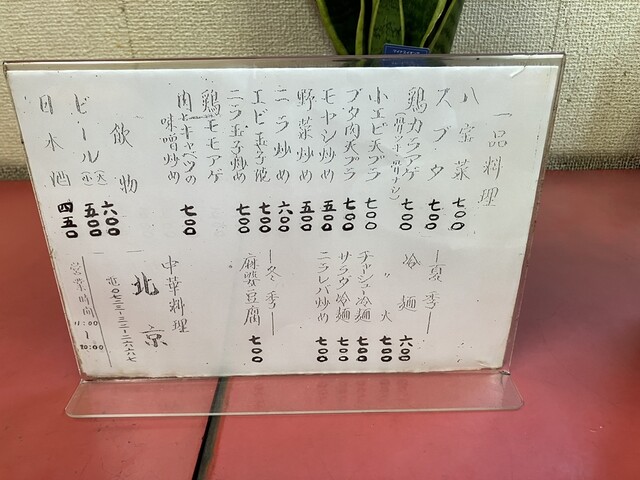 一品料理
八宝菜 七〇〇
スブタ 七〇〇
鶏カラアゲ 七〇〇
小エビ天プラ 七〇〇
ブタ肉天プラ 七〇〇
モヤシ炒め 五〇〇
野菜炒め 五〇〇
ニラ炒め 六〇〇
エビ玉子焼 七〇〇
ニラ玉子炒め 七〇〇
鶏モモアゲ
肉とキャベツの
味噌炒め 七〇〇
飲物
ビール(大) 六〇〇
(小) 五〇〇
日本酒 四五〇
―夏季―
冷麺 六〇〇
〃 大 七〇〇
チャーシュー冷麺 七〇〇
サラダ冷麺 七〇〇
ニラレバ炒め 七〇〇
―冬季―
麻婆豆腐 七〇〇
中華料理
北京
営業時間
11:00
20:00